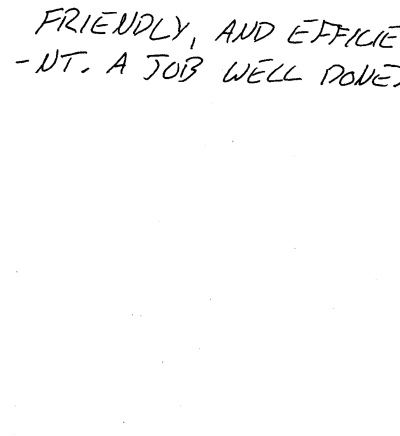 FRIENDLY, AND EFFICIE
-NT. A JOB WELL DONE